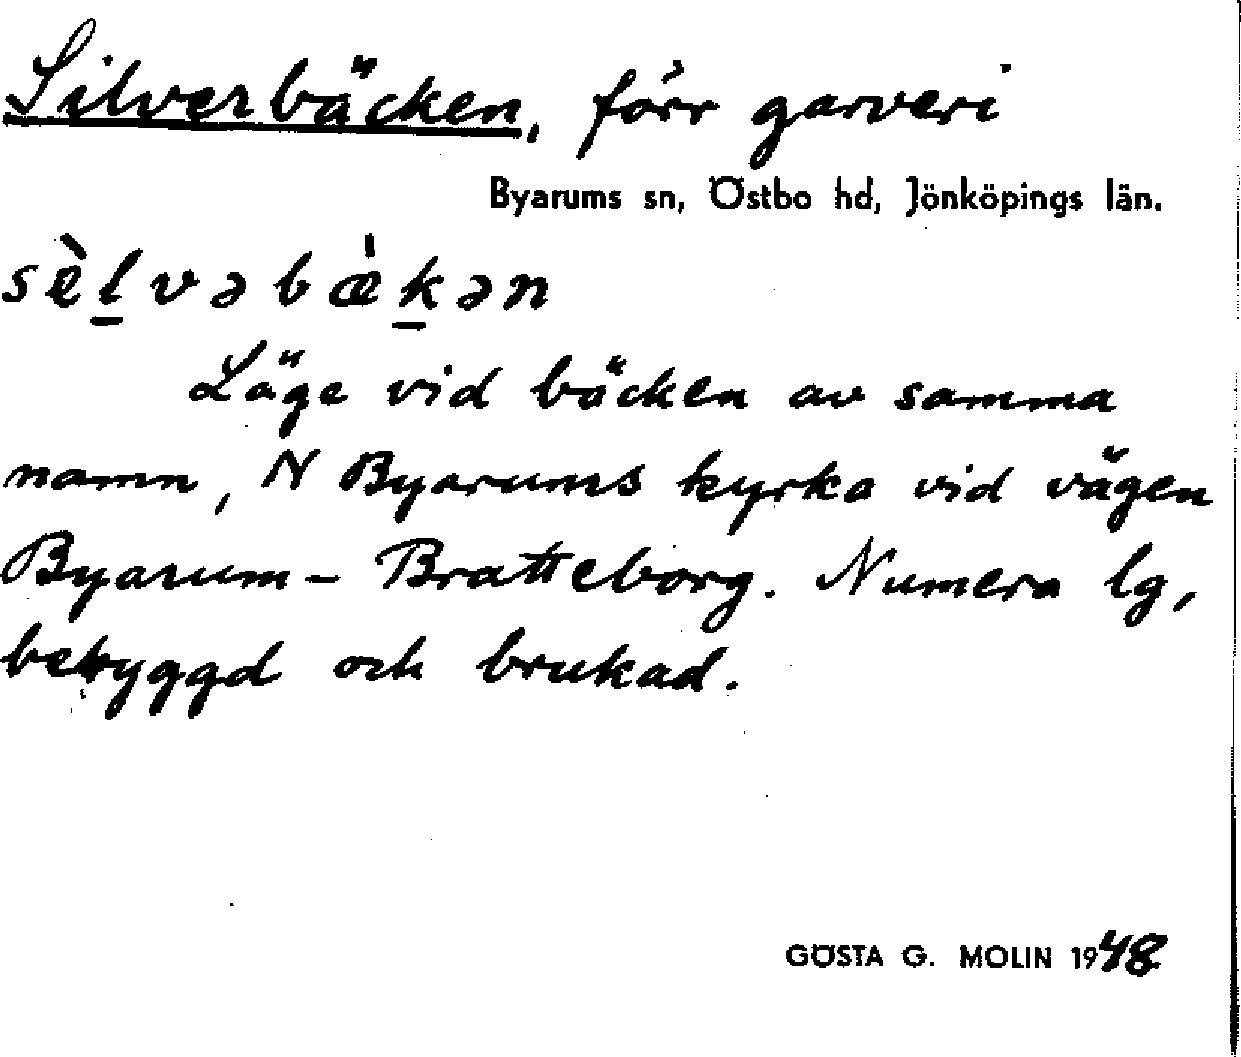 Silverbäcken, förr garveri
Byarums sn, Östbo hd, Jönköpings län.
sèl̲vəbæ̀k̲ən
Läge vid bäcken av samma
namn, N Byarums kyrka vid vägen
Byarum – Bratteborg. Numera lg,
bebyggd och brukad.
GÖSTA G. MOLIN 1948